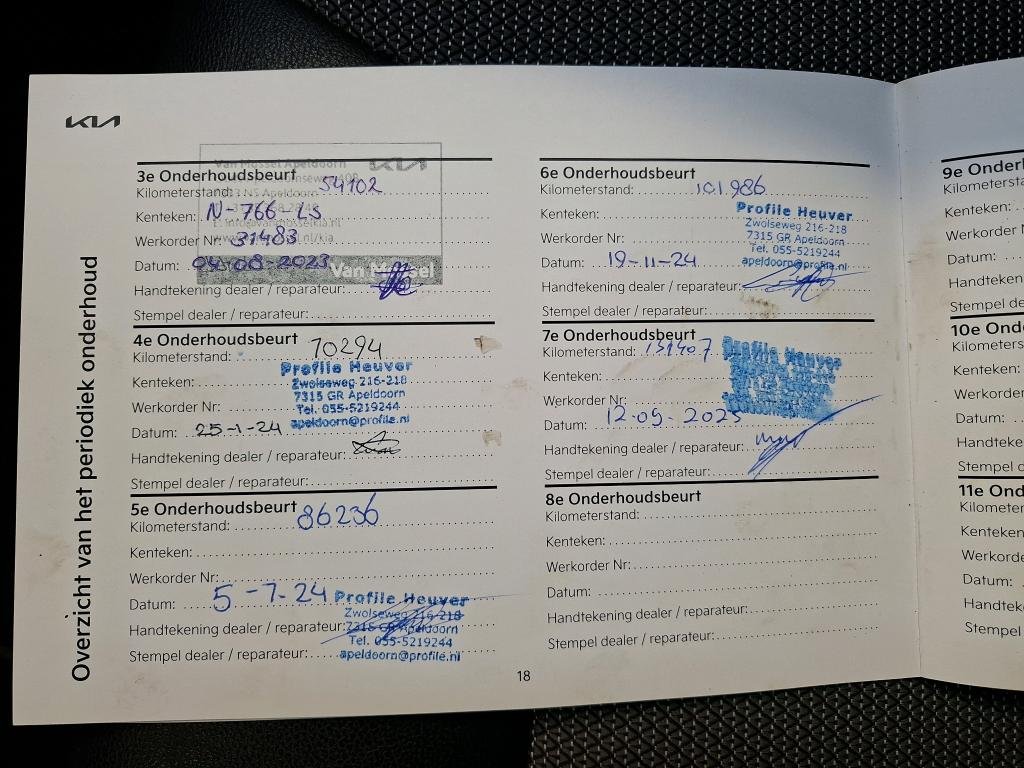 KIA
Overzicht van het periodiek onderhoud
Van Mossel Apeldoorn
KIA
3e Onderhoudsbeurt
Kilometerstand: 54102
Kenteken: N-766-LS
Werkorder Nr: 31483
Datum: 04-08-2023
Van Mossel
Handtekening dealer / reparateur:
Stempel dealer / reparateur:
4e Onderhoudsbeurt
Kilometerstand: 70294
Profile Heuver
Kenteken:
Zwolseweg 216-218
7315 GR Apeldoorn
Werkorder Nr:
Tel. 055-5219244
apeldoorn@profile.nl
Datum: 25-1-24
Handtekening dealer / reparateur:
Stempel dealer / reparateur:
5e Onderhoudsbeurt
Kilometerstand: 86236
Kenteken:
Werkorder Nr:
Datum: 5-7-24
Profile Heuver
Zwolseweg 216-218
Handtekening dealer / reparateur:
7315 GR Apeldoorn
Tel. 055-5219244
Stempel dealer / reparateur:
apeldoorn@profile.nl
6e Onderhoudsbeurt
Kilometerstand: 101986
Kenteken:
Profile Heuver
Zwolseweg 216-218
Werkorder Nr:
7315 GR Apeldoorn
Tel. 055-5219244
Datum: 19-11-24
apeldoorn@profile.nl
Handtekening dealer / reparateur:
Stempel dealer / reparateur:
7e Onderhoudsbeurt
Kilometerstand: 131407
Profile Heuver
Kenteken:
Werkorder Nr:
Datum: 12-09-2025
Handtekening dealer / reparateur:
Stempel dealer / reparateur:
8e Onderhoudsbeurt
Kilometerstand:
Kenteken:
Werkorder Nr:
Datum:
Handtekening dealer / reparateur:
Stempel dealer / reparateur:
18
9e Onderh
Kilometerstand
Kenteken:
Werkorder N
Datum:
Handtekening
Stempel de
10e Ond
Kilometers
Kenteken:
Werkorder
Datum:
Handteke
Stempel
11e Ond
Kilometer
Kenteken
Werkorde
Datum:
Handtek
Stempel